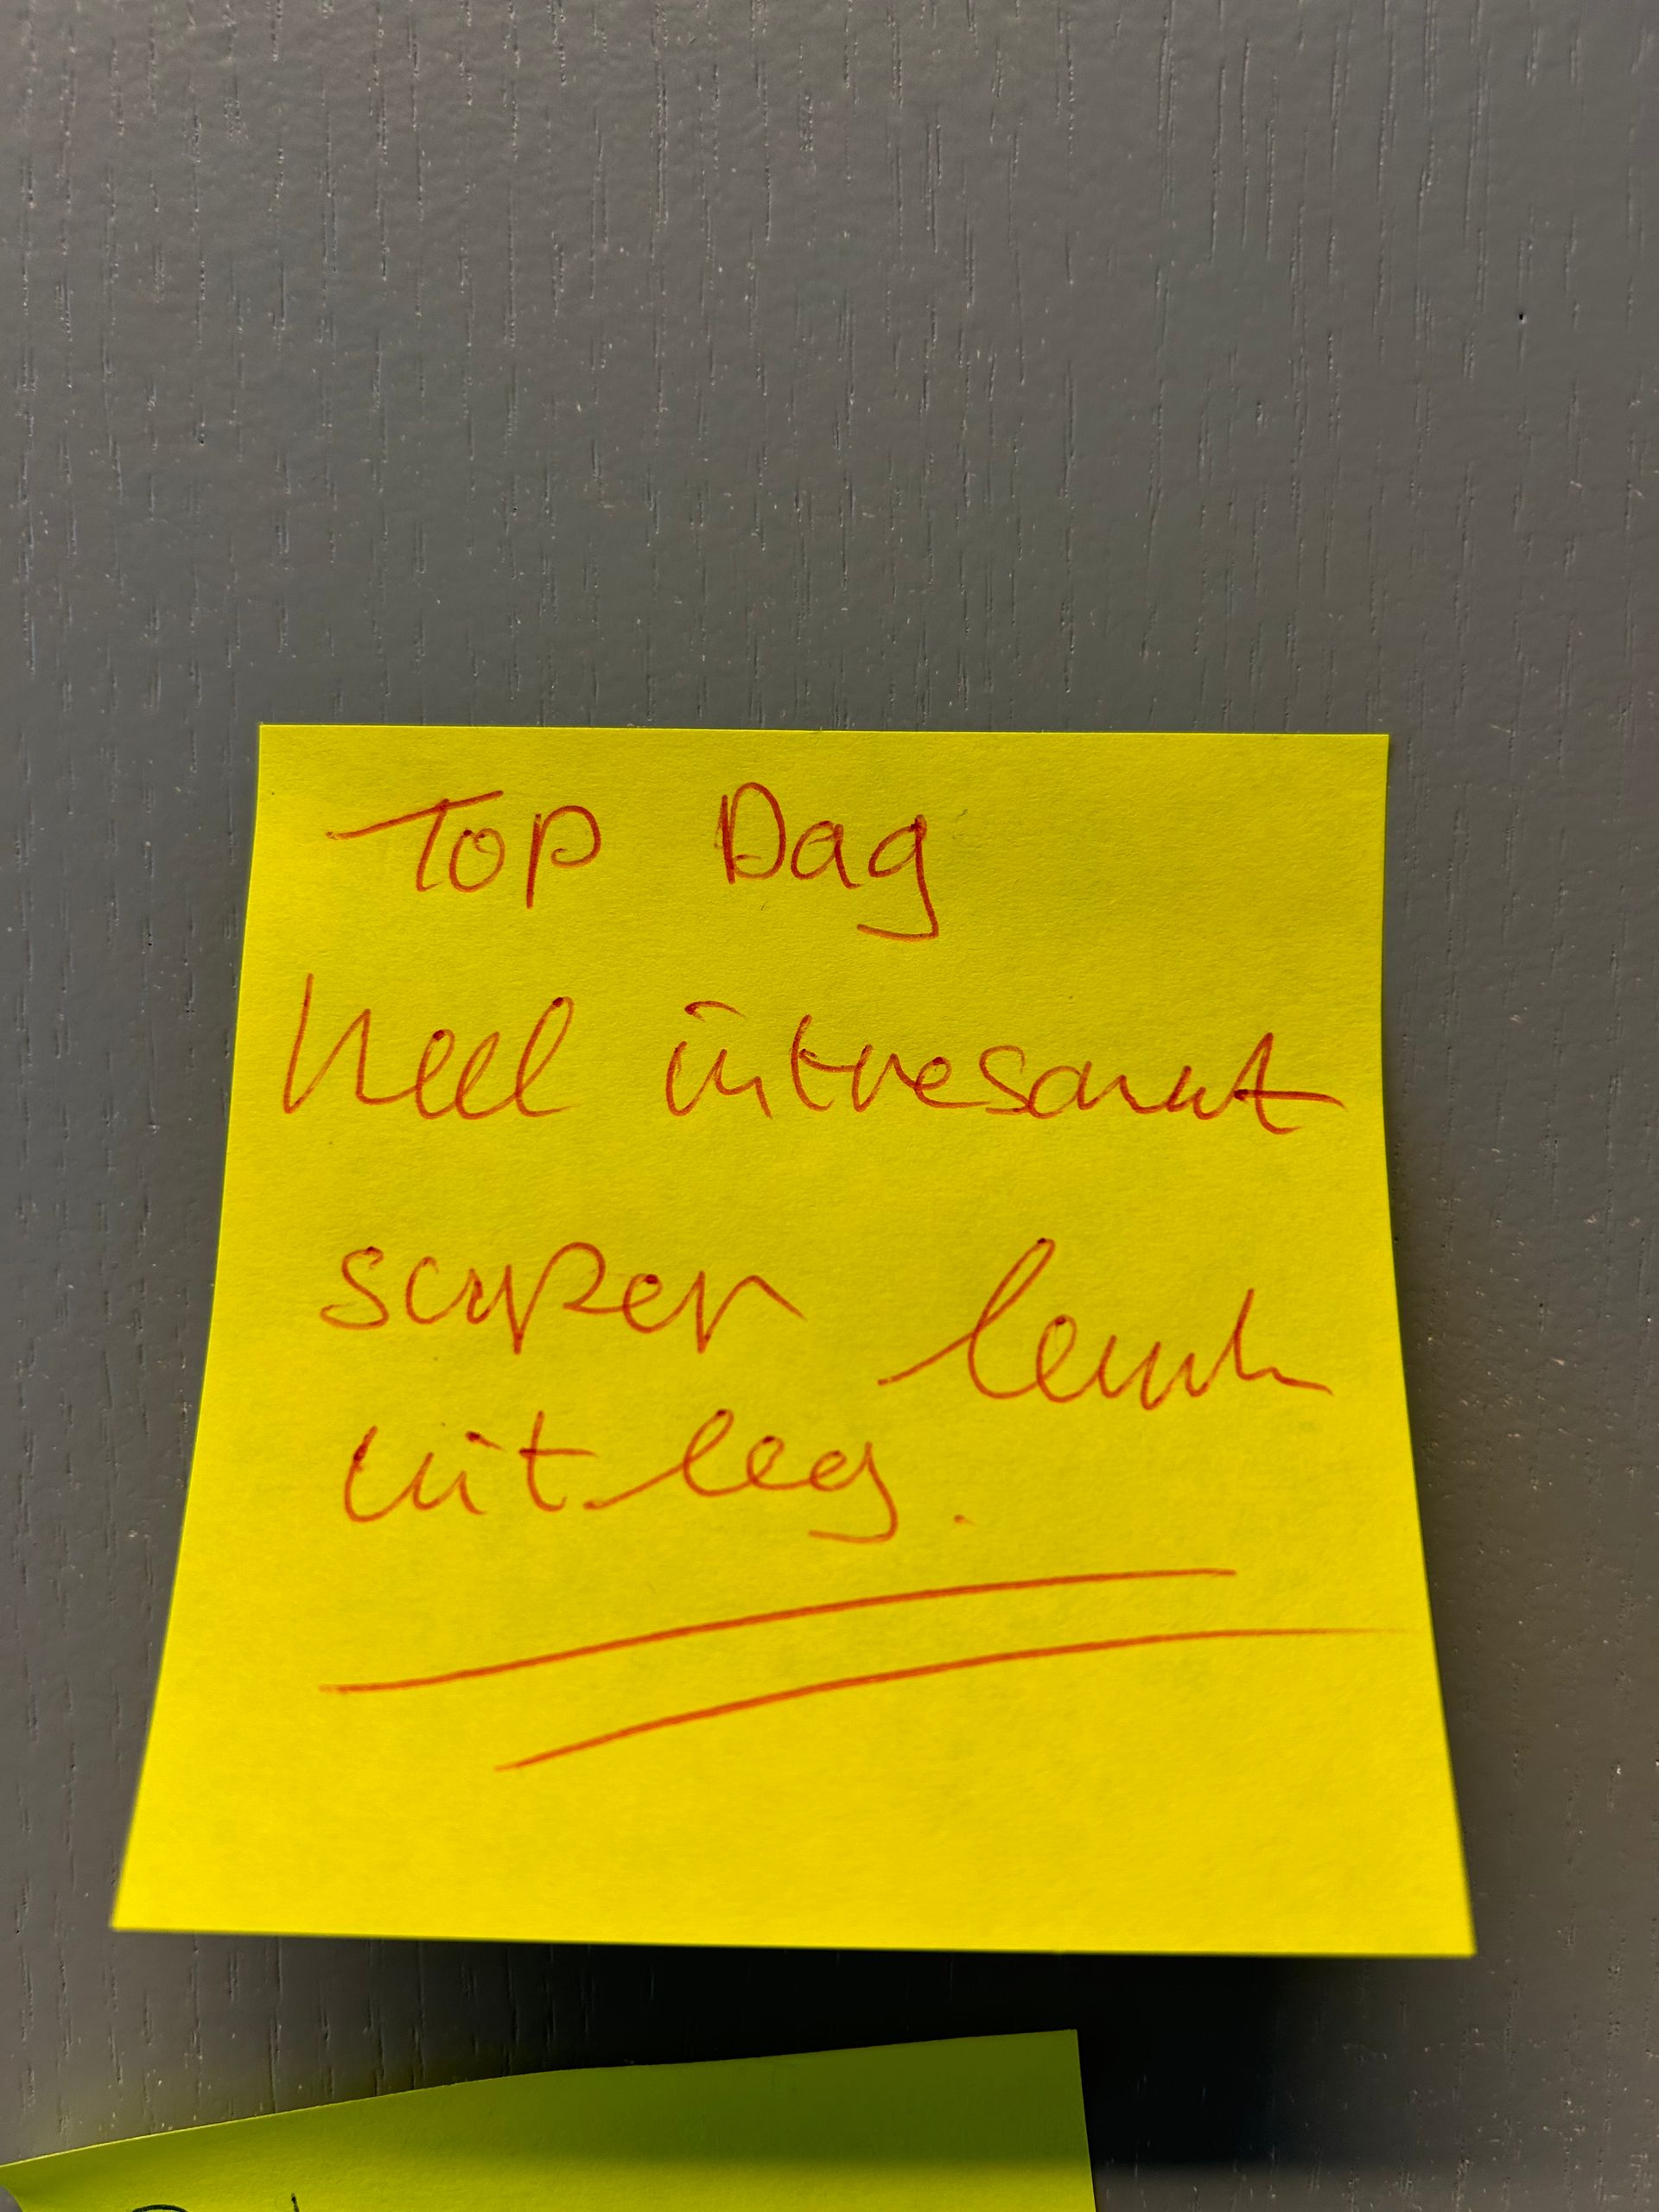 Top Dag
heel intresant
super leuk
uitleg.